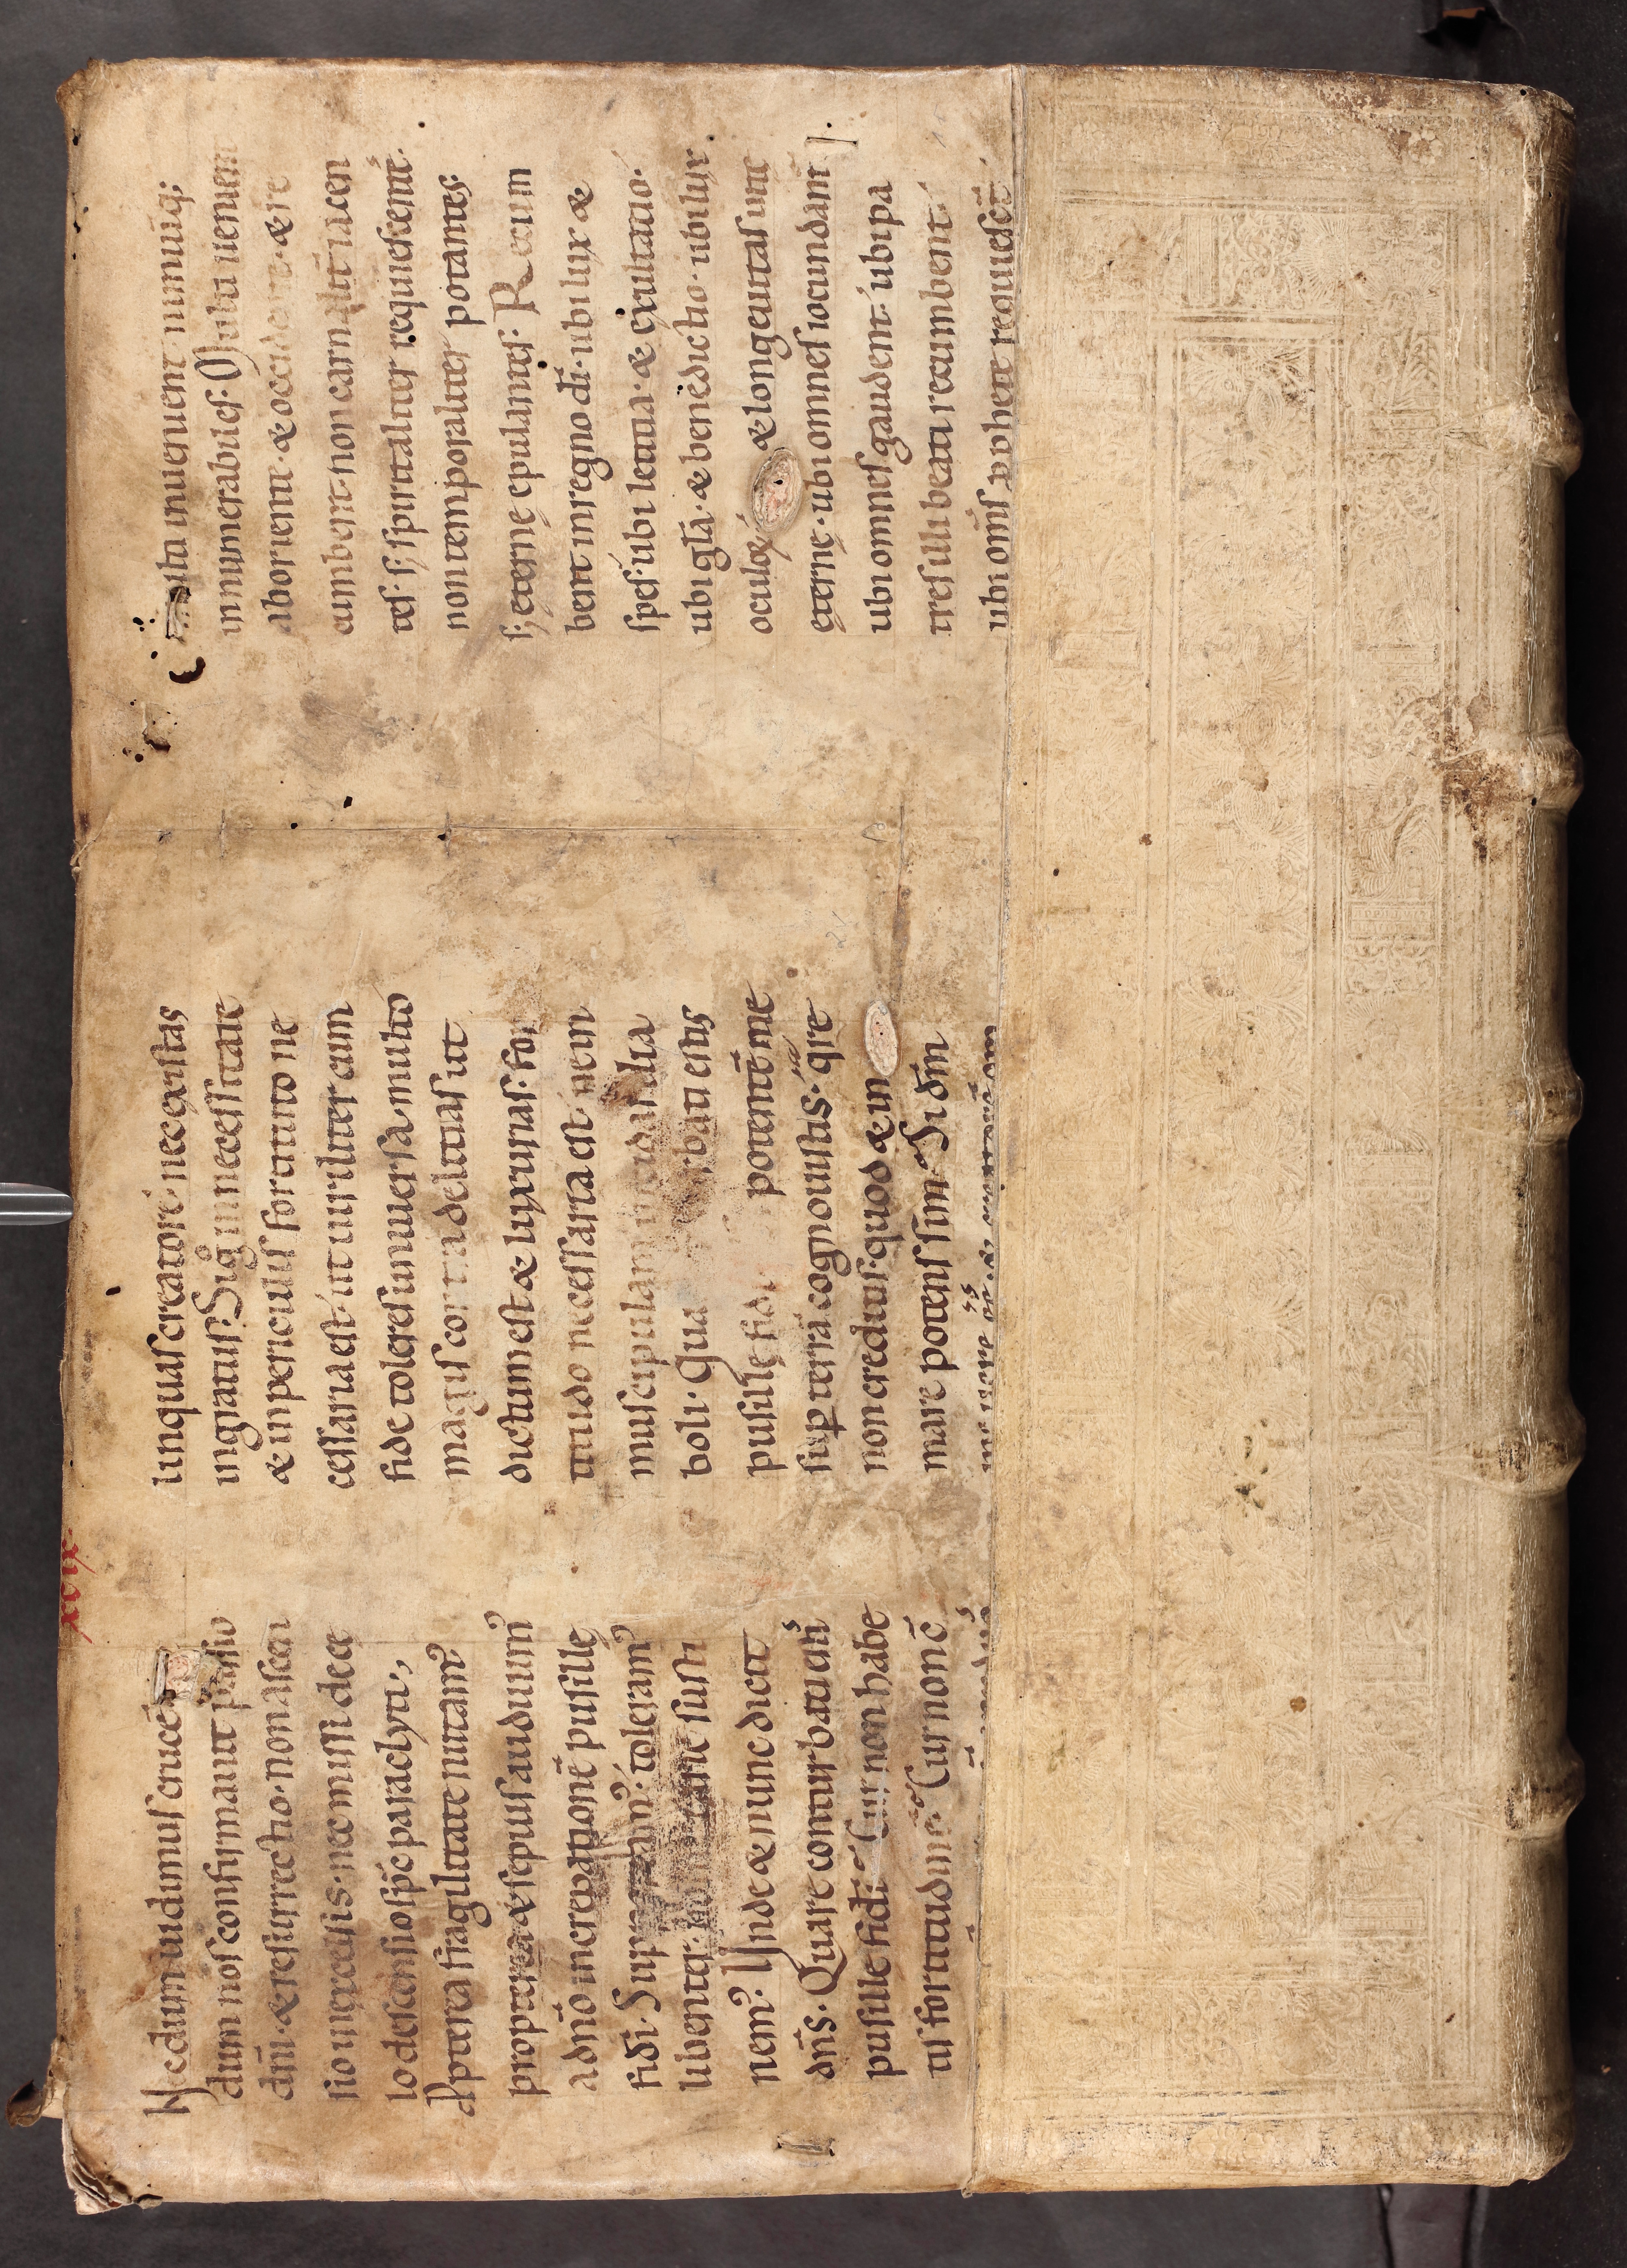 xcix.
Necdum uidimus crucē
dum nos confirmauit passio
dnī· & resurrectio· non ascen
sio in excelsis· nec missi de ce
lo descensio spc̄ paraclyti,
Apterea fragilitate nutamꝰ
propterea & sepius audiuimꝰ
a dnō increpationē pusille
fidi· toleramꝰ
libenter· susti
nemꝰ· Unde & nunc dicit
dns̄· Quare conturbati estis
pusille fidi· Cur non habe
tis fortitudinē· Cur non
linquas creatorē· nec existas
ingratus· Sig in necessitate
& in periculis fortitudo ne
cessaria est· ut uiriliter cum
fide toleres uniuersa· multo
magis contra delitias ut
dictum est & luxurias· for
titudo necessaria est· nem
muscipulam incidas dia
boli· Qua rbati estis
pusille fidi potentē me
sup terrā cognouistis· qre
non creditis· quod & in
mare potens sim· Si dm̄
multa inueuent nimiūq;
innumerabiles· Multi uenient
ab oriente· & occidente· & re
cumbent· non carnaliter iacen
tes· s; spiritaliter requiescentes·
non temporaliter potantes·
s; eterne epulantes· Recum
bent in regno dī· ubi lux &
spes· ubi letitia· & exultatio·
ubi gla· & benedictio· ubi lux
oculoꝝ & longeuitas uite
eterne· ubi omnes iocundant
ubi omnes gaudent· ubi pa
tres illi beati recumbent·
ubi oms̄ pphete requiescēt·